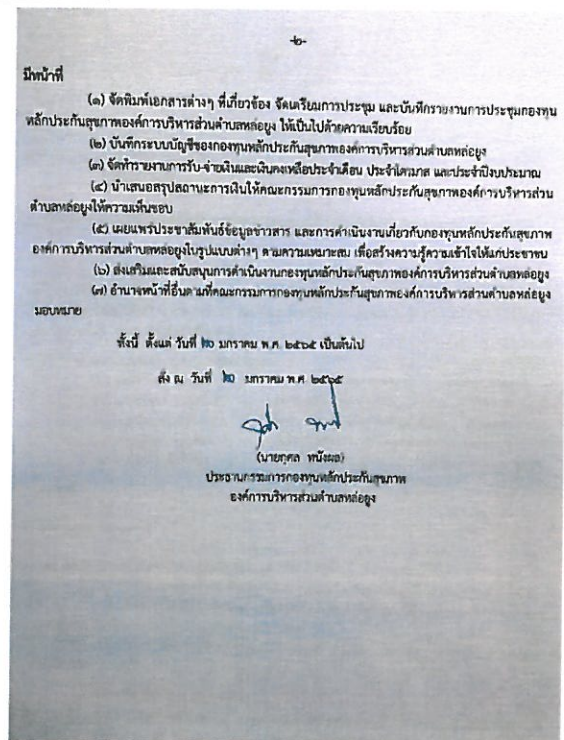 -๒-
มีหน้าที่
(๑) จัดพิมพ์เอกสารต่างๆ ที่เกี่ยวข้อง จัดเตรียมการประชุม และบันทึกรายงานการประชุมกองทุน
หลักประกันสุขภาพองค์การบริหารส่วนตำบลหล่อยูง ให้เป็นไปด้วยความเรียบร้อย
(๒) บันทึกระบบบัญชีของกองทุนหลักประกันสุขภาพองค์การบริหารส่วนตำบลหล่อยูง
(๓) จัดทำรายงานการรับ-จ่ายเงินและเงินคงเหลือประจำเดือน ประจำไตรมาส และประจำปีงบประมาณ
(๔) นำเสนอสรุปสถานะการเงินให้คณะกรรมการกองทุนหลักประกันสุขภาพองค์การบริหารส่วน
ตำบลหล่อยูงให้ความเห็นชอบ
(๕) เผยแพร่ประชาสัมพันธ์ข้อมูลข่าวสาร และการดำเนินงานเกี่ยวกับกองทุนหลักประกันสุขภาพ
องค์การบริหารส่วนตำบลหล่อยูงในรูปแบบต่างๆ ตามความเหมาะสม เพื่อสร้างความรู้ความเข้าใจให้แก่ประชาชน
(๖) ส่งเสริมและสนับสนุนการดำเนินงานกองทุนหลักประกันสุขภาพองค์การบริหารส่วนตำบลหล่อยูง
(๗) อำนาจหน้าที่อื่นตามที่คณะกรรมการกองทุนหลักประกันสุขภาพองค์การบริหารส่วนตำบลหล่อยูง
มอบหมาย
ทั้งนี้ ตั้งแต่ วันที่ ๒๐ มกราคม พ.ศ. ๒๕๖๕ เป็นต้นไป
สั่ง ณ วันที่ ๒๐ มกราคม พ.ศ. ๒๕๖๕
(นายกุศล
ประธานกรรมการกองทุนหลักประกันสุขภาพ
องค์การบริหารส่วนตำบลหล่อยูง